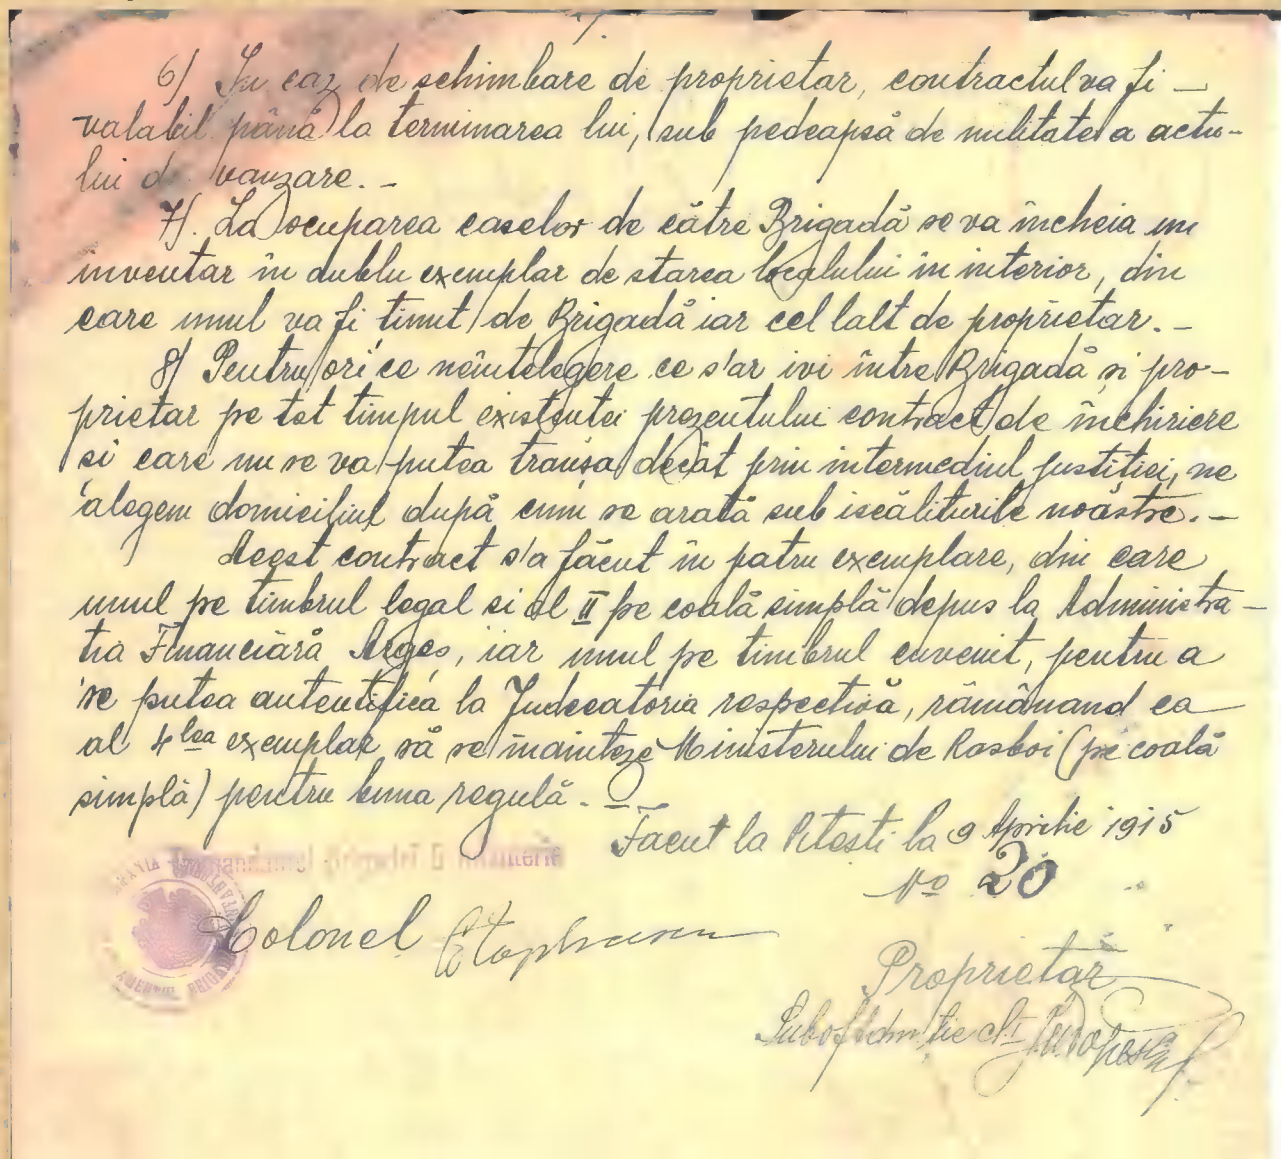 6) In caz de schimbare de proprietar, contractul va fi –
valabil până la terminarea lui, sub pedeapsă de nulitate a actu-
lui de vanzare. –
7). La ocuparea caselor de către Brigadă se va încheia un
inventar în dublu exemplar de starea localului în interior, din
care unul va fi ținut de Brigadă iar cel lalt de proprietar. –
8) Pentru ori ce neînțelegere ce s'ar ivi între Brigadă și pro-
prietar pe tot timpul existenței prezentului contract de închiriere
și care nu se va putea tranșa decât prin intermediul justiției, ne
alegem domiciliul după cum se arată sub iscăliturile noastre. –
Acest contract s'a făcut în patru exemplare, din care
unul pe timbrul legal si al II pe coală simplă depus la Administra-
tia Financiară Argeș, iar unul pe timbrul cuvenit, pentru a
se putea autentifica la Judecatoria respectivă, rămânand ca
al 4lea exemplar să se înainteze Ministerului de Rasboi (pe coală
simplă) pentru buna regulă. –
Facut la Pitești la 9 Aprilie 1915
No 20
Colonel
Proprietar